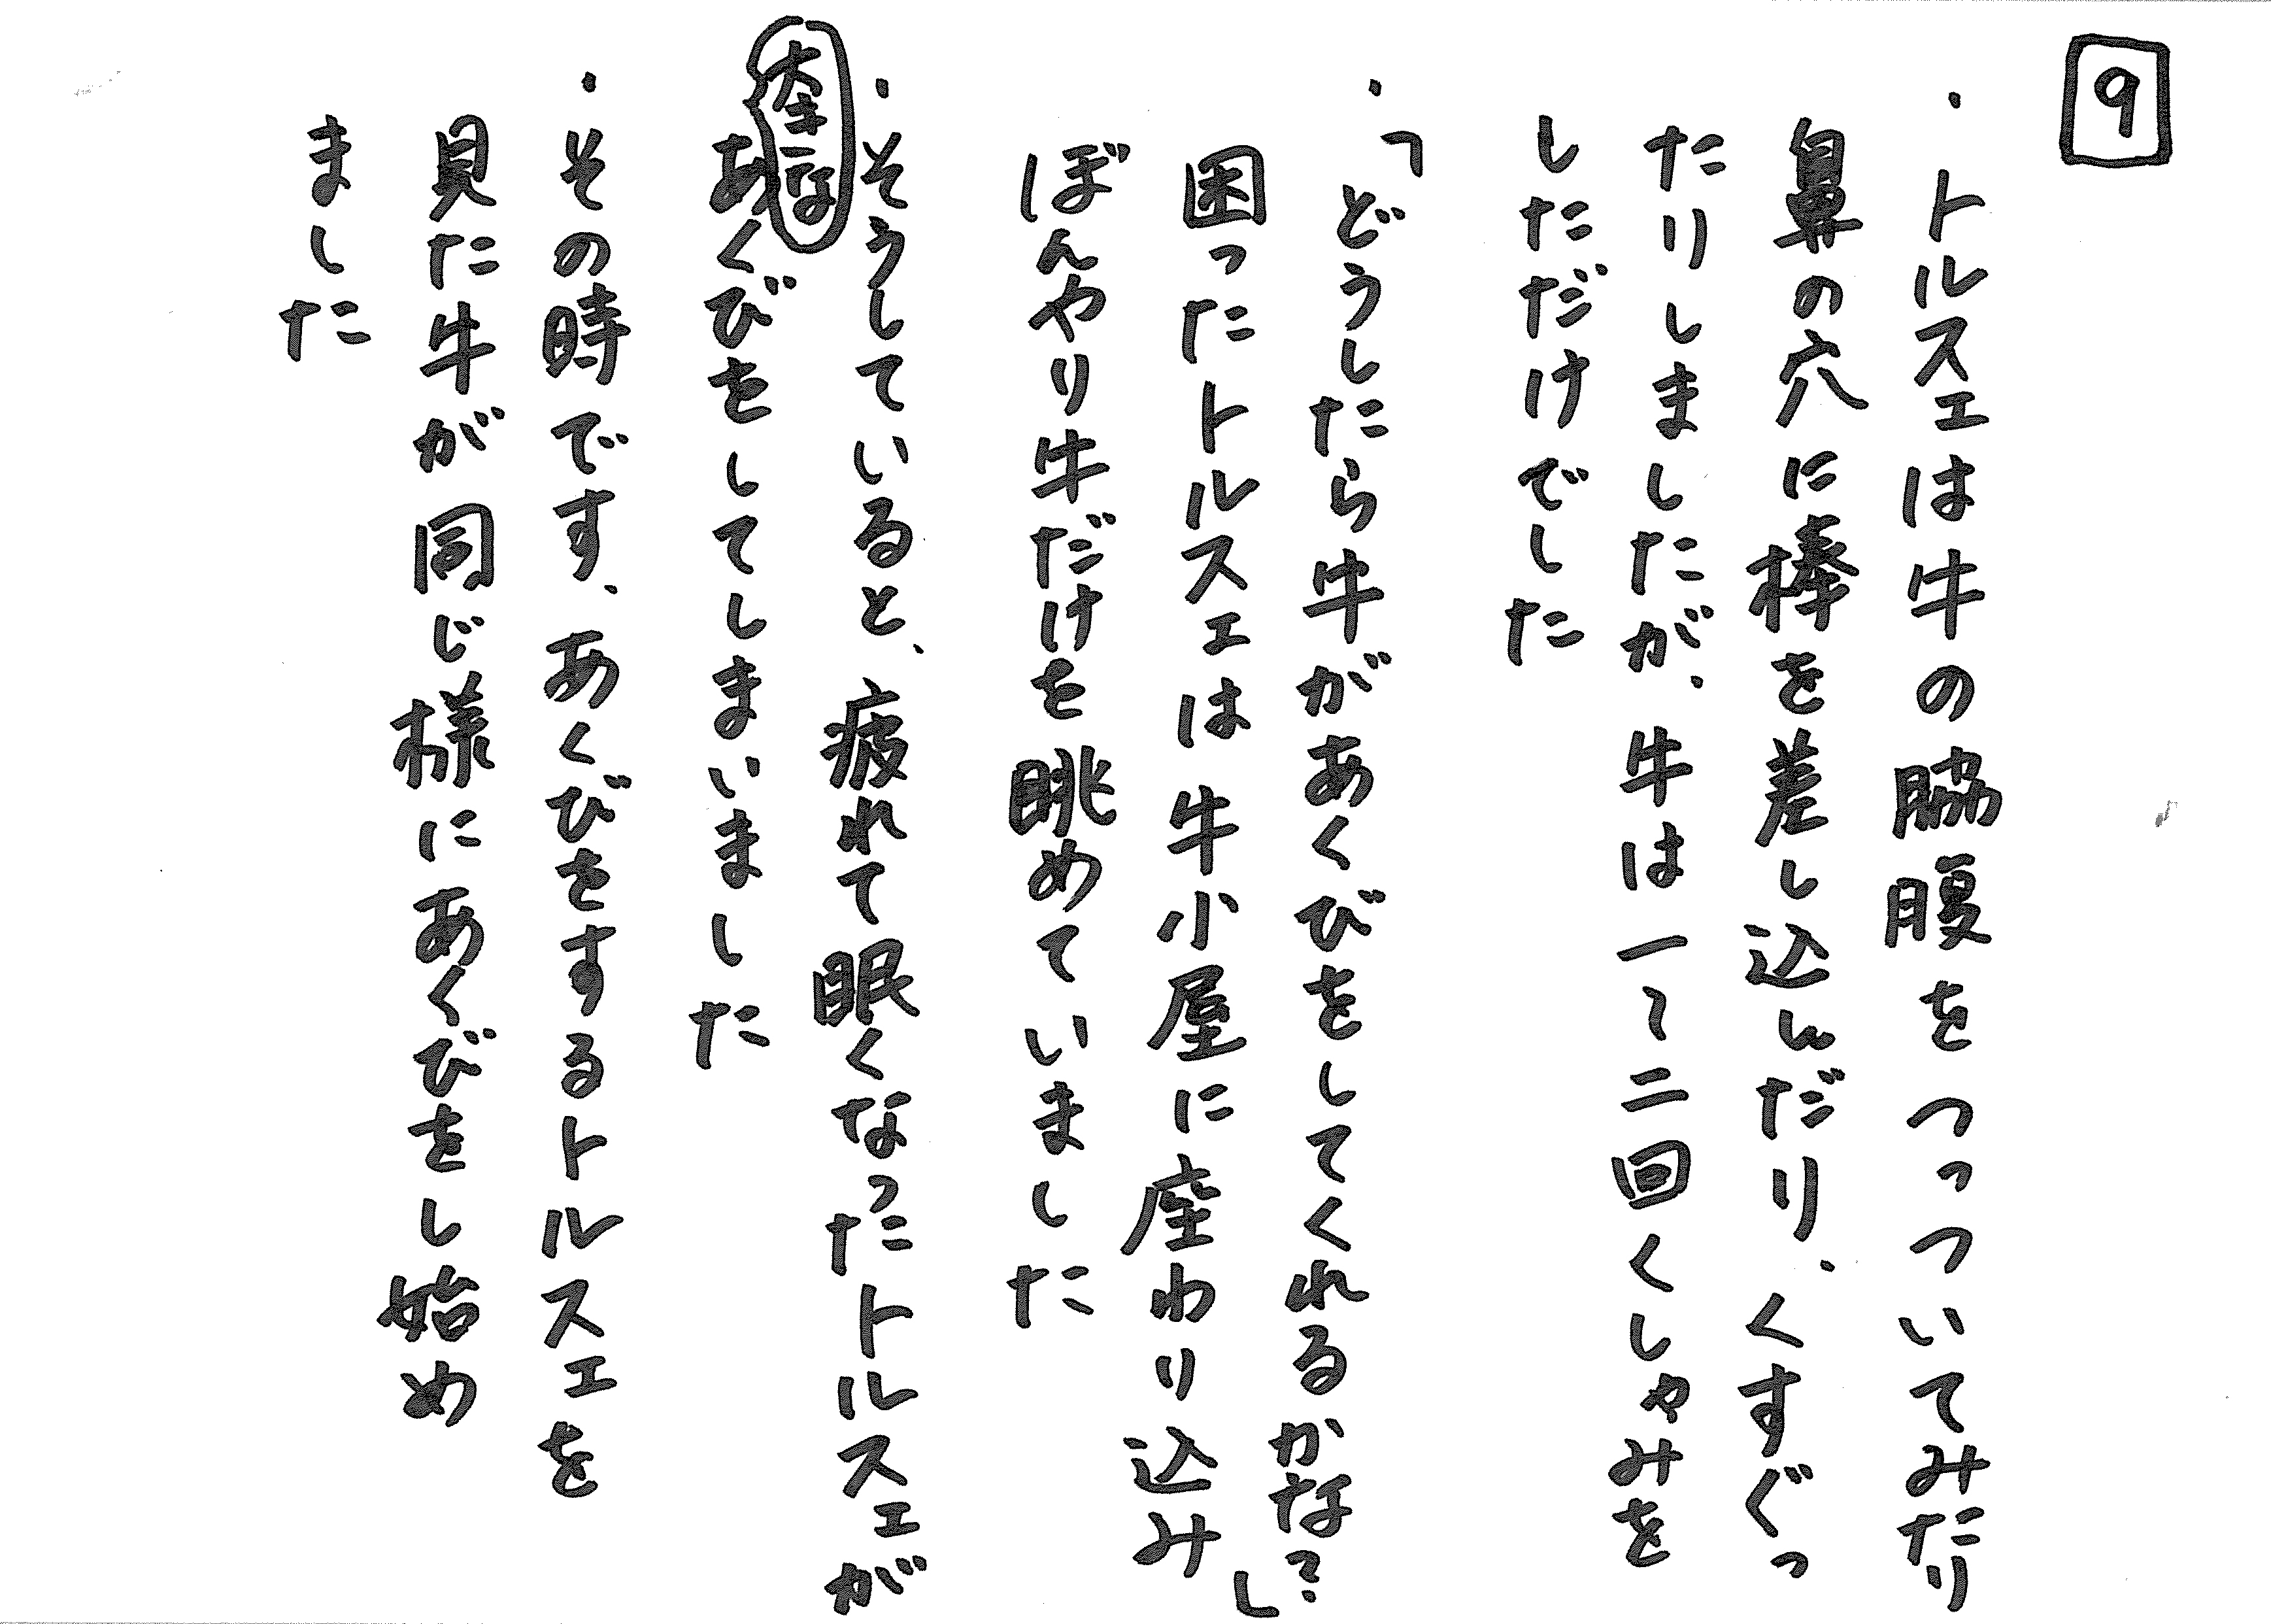 9
・トルスェは牛の脇腹をつっついてみたり
鼻の穴に棒を差し込んだり、くすぐっ
たりしましたが、牛は一〜二回くしゃみを
しただけでした
・「どうしたら牛があくびをしてくれるかな?」
困ったトルスェは牛小屋に座わり込み
ぼんやり牛だけを眺めていました
・そうしていると、疲れて眠くなったトルスェが
大きーな
あくびをしてしまいました
・その時です、あくびをするトルスェを
見た牛が同じ様にあくびをし始め
ました